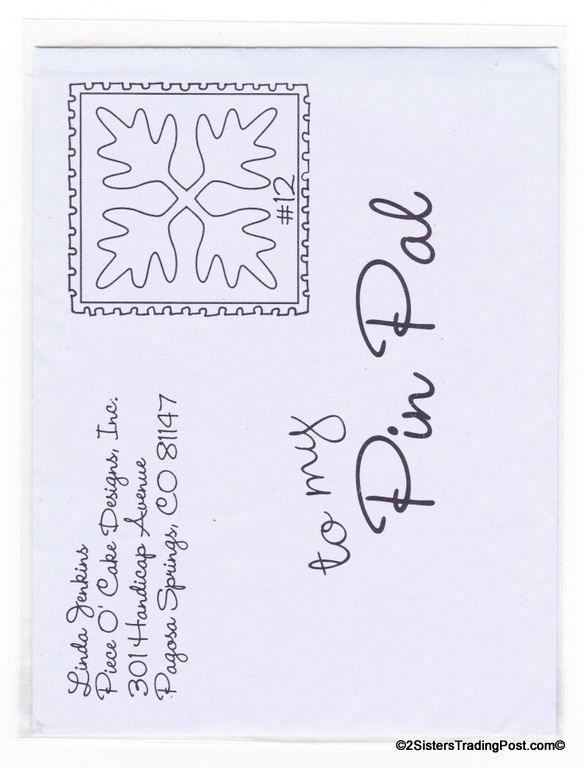 Linda Jenkins
Piece O' Cake Designs, Inc.
301 Handicap Avenue
Pagosa Springs, CO 81147
#12
to my
Pin Pal
©2SistersTradingPost.com©